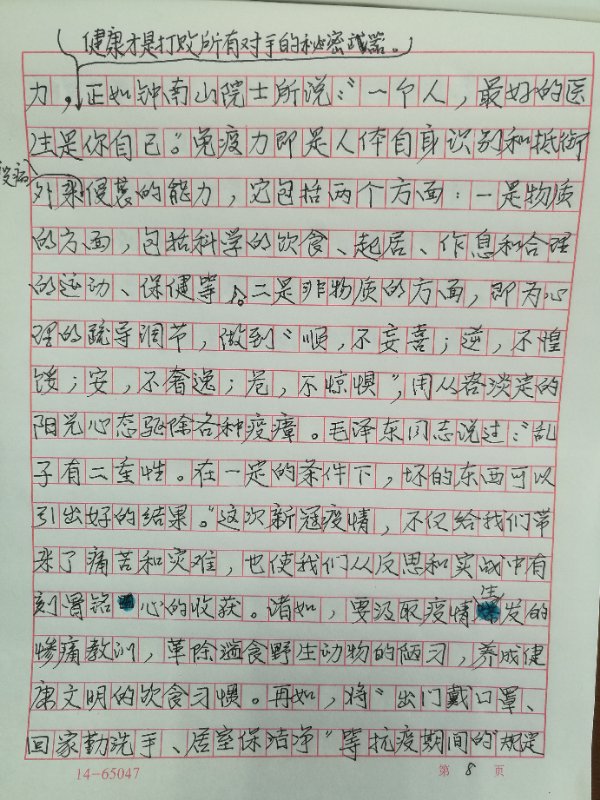 健康才是打败所有对手的秘密武器。
力，正如钟南山院士所说：“一个人，最好的医
生是你自己。”免疫力即是人体自身识别和抵御
疫病
外来侵袭的能力，它包括两个方面：一是物质
的方面，包括科学的饮食、起居、作息和合理
的运动、保健等。二是非物质的方面，即为心
理的疏导调节，做到“顺，不妄喜；逆，不惶
馁；安，不奢逸；危，不惊惧”，用从容淡定的
阳光心态驱除各种疫瘴。毛泽东同志说过：“乱
子有二重性。在一定的条件下，坏的东西可以
引出好的结果。”这次新冠疫情，不仅给我们带
来了痛苦和灾难，也使我们从反思和实战中有
刻骨铭心的收获。诸如，要汲取疫情生发的
惨痛教训，革除滥食野生动物的陋习，养成健
康文明的饮食习惯。再如，将“出门戴口罩、
回家勤洗手、居室保洁净”等抗疫期间的“规定
14-65047
第 8 页